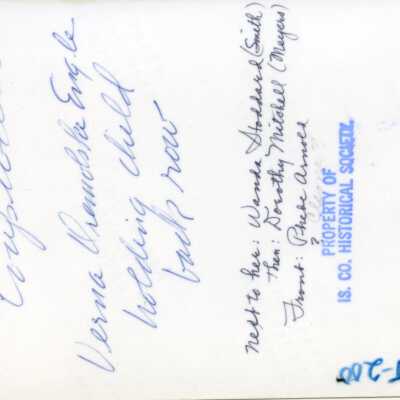 Verna
Engle
holding child
back row
Next to her: Wanda Stoddard (Smith)
Then: Dorothy Mitchell (Meyers)
Front: Phebe Arnold
?
PROPERTY OF
IS. CO. HISTORICAL SOCIETY.
-200